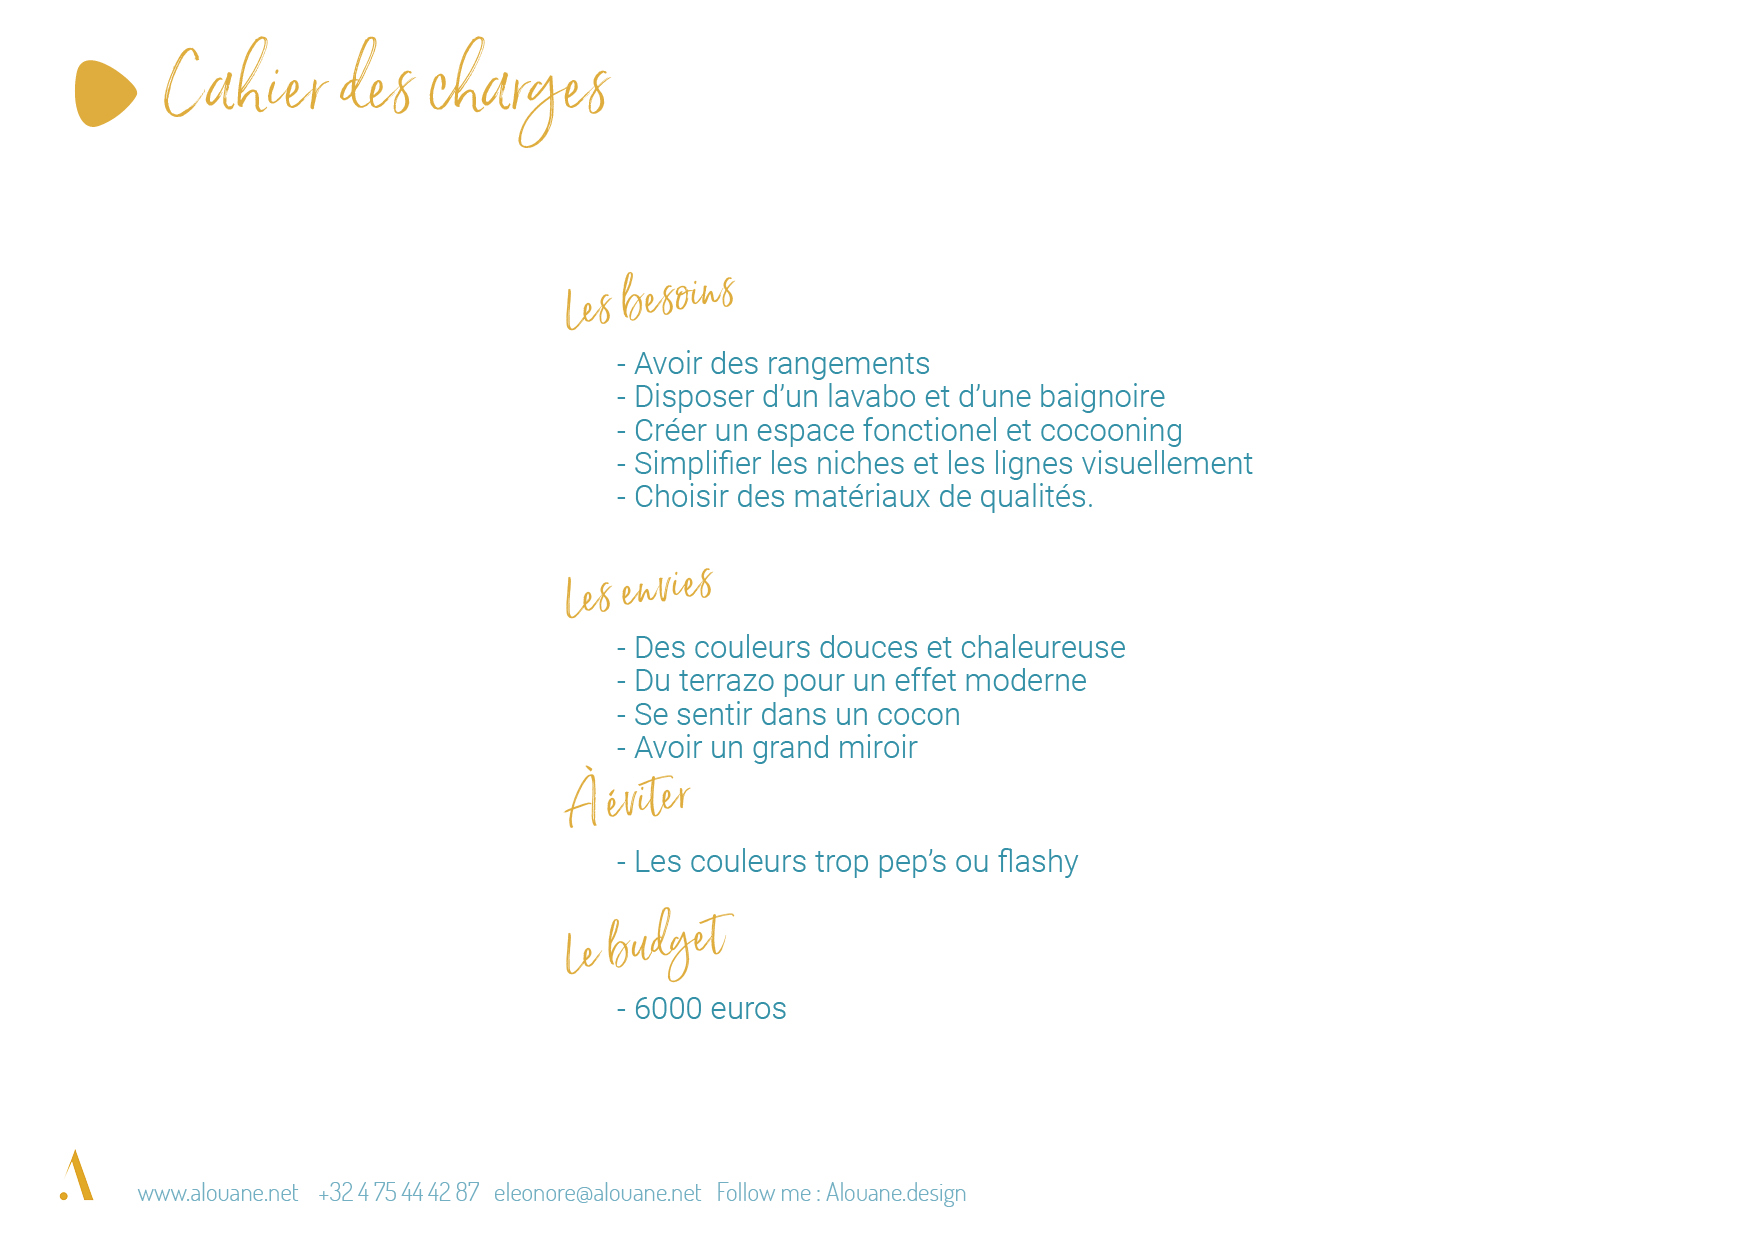 Cahier des charges
Les besoins
- Avoir des rangements
- Disposer d’un lavabo et d’une baignoire
- Créer un espace fonctionel et cocooning
- Simplifier les niches et les lignes visuellement
- Choisir des matériaux de qualités.
Les envies
- Des couleurs douces et chaleureuse
- Du terrazo pour un effet moderne
- Se sentir dans un cocon
- Avoir un grand miroir
À éviter
- Les couleurs trop pep’s ou flashy
Le budget
- 6000 euros
www.alouane.net +32 4 75 44 42 87 eleonore@alouane.net Follow me : Alouane.design